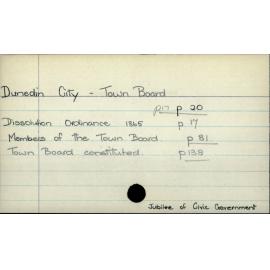 Dunedin City - Town Board
p17 p 20
Dissolution Ordinance 1865 p 17
Members of the Town Board p 81
Town Board constituted. p138
Jubilee of Civic Government